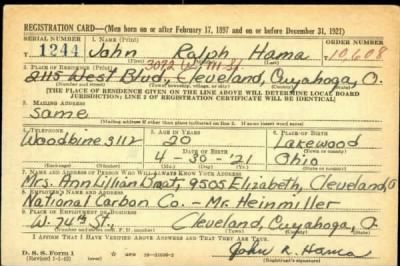 REGISTRATION CARD—(Men born on or after February 17, 1897 and on or before December 31, 1921)
SERIAL NUMBER 1. NAME (Print) ORDER NUMBER
1244 John Ralph Hama 10,608
(First) (Middle) (Last)
3072 W.
2. PLACE OF RESIDENCE (Print)
2115 West Blvd, Cleveland, Cuyahoga, O.
(Number and street) (Town, township, village, or city) (County) (State)
[THE PLACE OF RESIDENCE GIVEN ON THE LINE ABOVE WILL DETERMINE LOCAL BOARD
JURISDICTION; LINE 2 OF REGISTRATION CERTIFICATE WILL BE IDENTICAL]
3. MAILING ADDRESS
Same
[Mailing address if other than place indicated on line 2. If same insert word same]
4. TELEPHONE 5. AGE IN YEARS 6. PLACE OF BIRTH
Woodbine 3112 20 Lakewood
DATE OF BIRTH (Town or county)
4-30-'21 Ohio
(Exchange) (Number) (Mo.) (Day) (Yr.) (State or country)
7. NAME AND ADDRESS OF PERSON WHO WILL ALWAYS KNOW YOUR ADDRESS
Mrs. Ann Lillian 9505 Elizabeth, Cleveland, O
8. EMPLOYER'S NAME AND ADDRESS
National Carbon Co. - Mr. Heinmiller
9. PLACE OF EMPLOYMENT OR BUSINESS
W. 74th St., Cleveland, Cuyahoga, O.
(Number and street or R. F. D. number) (Town) (County) (State)
I AFFIRM THAT I HAVE VERIFIED ABOVE ANSWERS AND THAT THEY ARE TRUE.
D. S. S. Form 1
John R. Hama
(Registrant's signature)